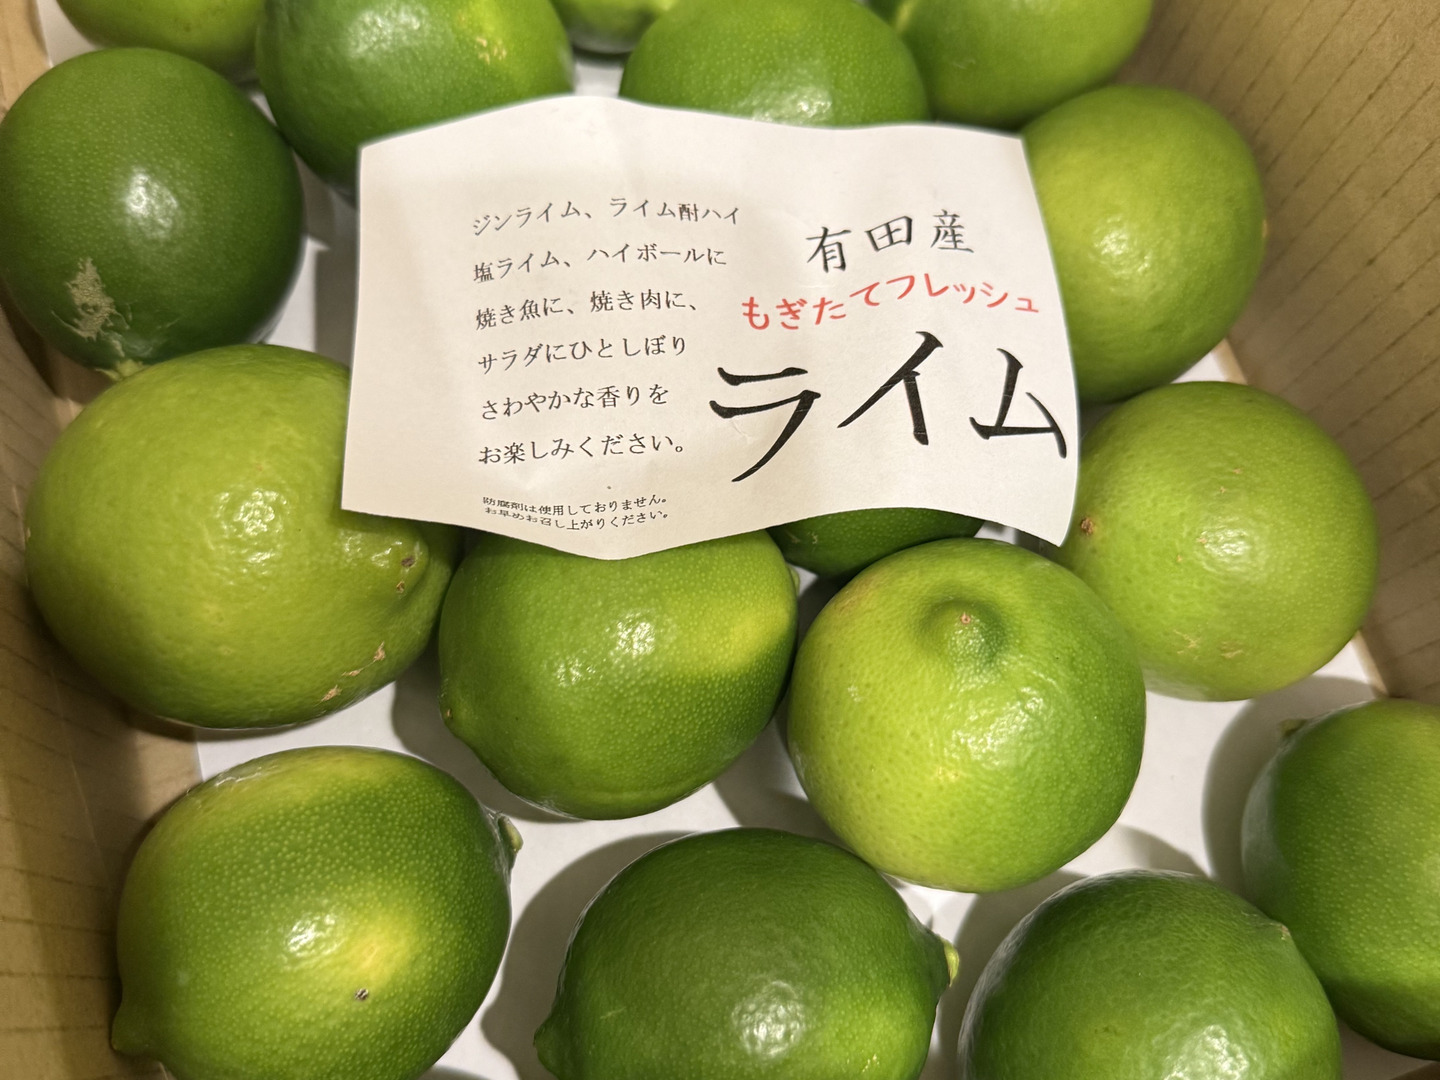 有田産
もぎたてフレッシュ
ライム
ジンライム、ライム酎ハイ
塩ライム、ハイボールに
焼き魚に、焼き肉に、
サラダにひとしぼり
さわやかな香りを
お楽しみください。
防腐剤は使用しておりません。
お早めお召し上がりください。